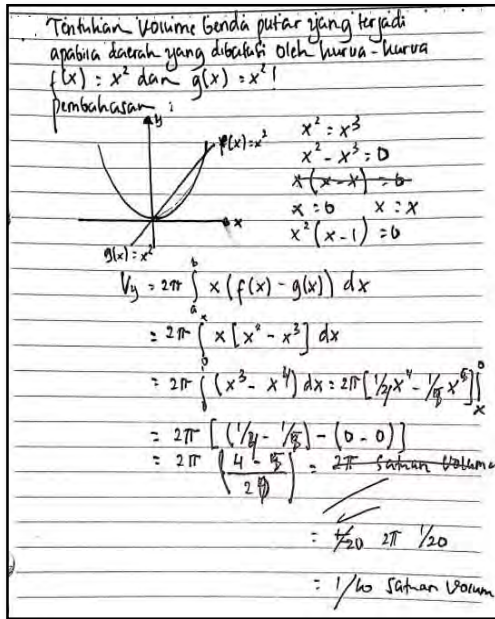 Tentukan volume benda putar yang terjadi
apabila daerah yang dibatasi oleh kurva-kurva
f(x) = x² dan g(x) = x² !
pembahasan :
y
f(x)=x²
x
g(x)=x²
x² = x³
x² - x³ = 0
x(x-x) = 0
x = 0 x = x
x²(x-1) = 0
Vy = 2π ∫ₐᵇ x(f(x) - g(x)) dx
= 2π ∫₀ˣ x[x² - x³] dx
= 2π ∫ (x³ - x⁴) dx = 2π [1/4 x⁴ - 1/5 x⁵]
= 2π [(1/4 - 1/5) - (0 - 0)]
= 2π = 2π satuan volume
= 1/20 2π 1/20
= 1/10 satuan volum